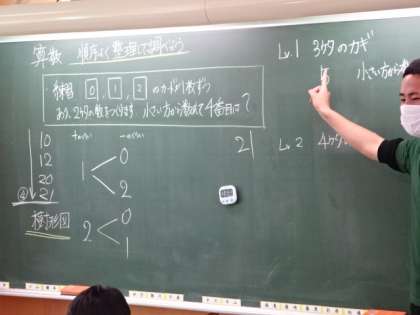 算数 順序よく整理して調べよう
練習 0, 1, 2 のカードが1枚ずつ
あり、2ケタの数をつくります 小さい方から数えて4番目は?
10
12
20
④ 21
樹形図
十のくらい 一のくらい
1 0
2
2 0
1
21
Lv.1 3ケタのカギ
小さい方から
Lv.2 4ケタ